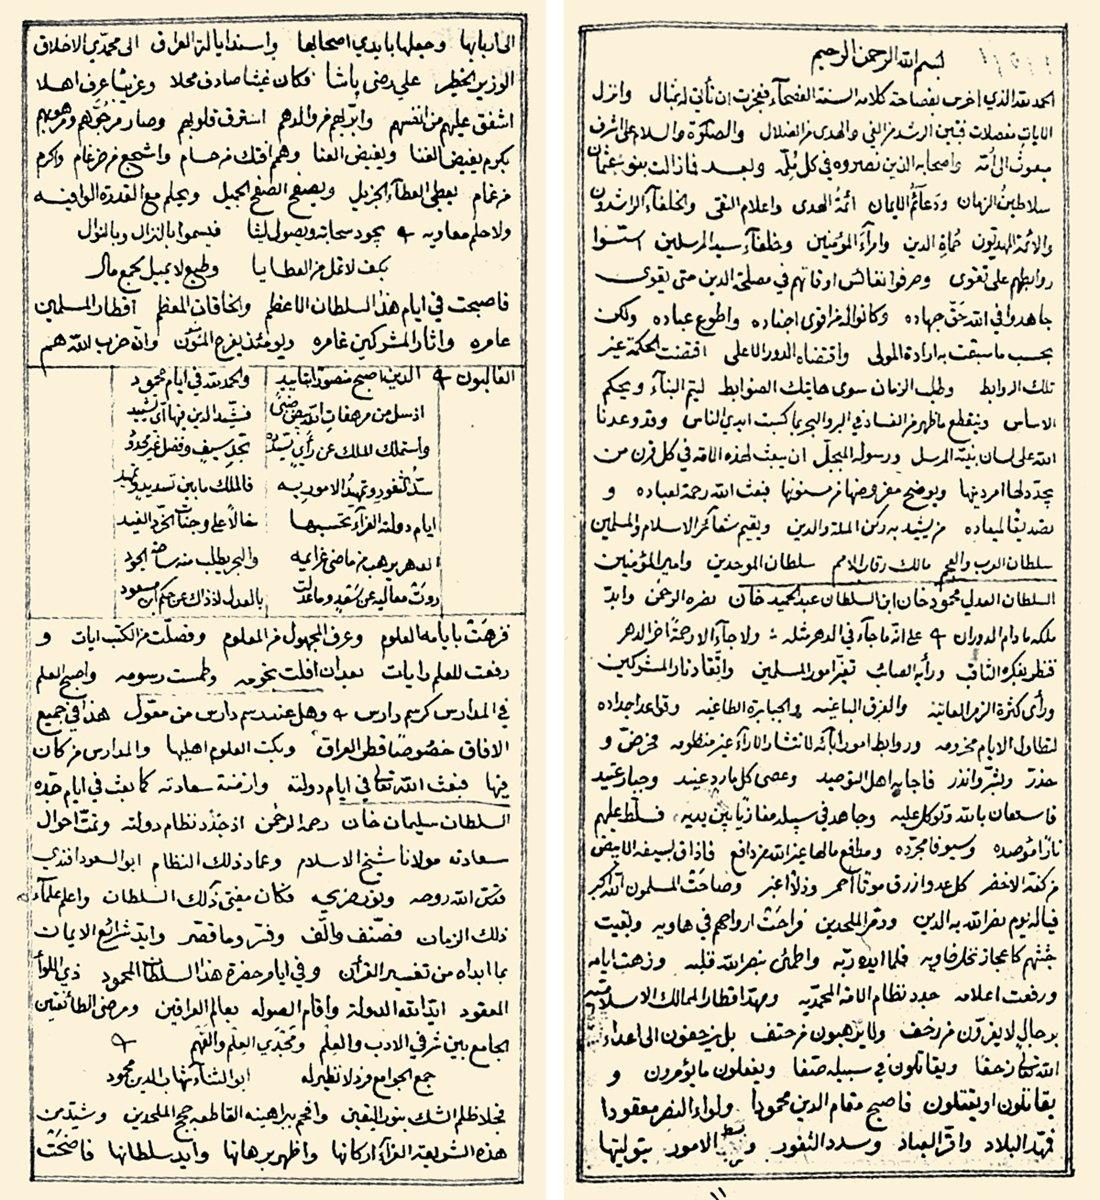 بسم الله الرحمن الرحيم
الحمد لله الذي اخرس بفصاحة كلامه السنة الفصحآء فعجزت ان تأتي بمثال وانزل
الايات مفصلات فتبين الرشد من الغي والهدى من الضلال والصلوة والسلام على اشرف
مبعوث الى امة واصحابه الذين نصروه في كل ملمة وبعد فما زالت بنو عثمان
سلاطين الزمان ودعائم الايمان ائمة الهدى واعلام التقى والخلفآء الراشدون
والائمة المهديون حماة الدين وامرآء المؤمنين وخلفآء سيد المرسلين اسسوا
روابطهم على تقوى وصرفوا نفائس اوقاتهم في مصلحة الدين حتى يقوى
جاهدوا في الله حق جهاده وكانوا له من اقوى اجناده واطوع عباده ولكن
بحسب ما سبقت به ارادة المولى واقتضاه الدور الاعلى اقتضت الحكمة غير
تلك الروابط وطلب الزمان سوى هاتيك الضوابط ليتم البنآء ويحكم
الاساس وينقطع ما ظهر من الفساد في البر والبحر بما كسبت ايدي الناس وقد وعدنا
الله على لسان نبيه المرسل ورسوله المبجل ان يبعث لهذه الامة في كل قرن من
يجدد لها امر دينها ويوضح مفروضها من مسنونها فبعث الله رحمة لعباده و
تصديقا لميعاده من يشيد به ركن الملة والدين ويقيم شعائر الاسلام والمسلمين
سلطان العرب والعجم مالك رقاب الامم سلطان الموحدين وامير المؤمنين
السلطان العدلي محمود خان ابن السلطان عبد الحميد خان نصره الرحمن وابد
ملكه ما دام الدوران على انه ما جاء في الدهر مثله ولا جآء الا رحمة اخر الدهر
فنظر بفكره الثاقب ورأيه الصائب تغير امور المسلمين واتقاد نار المشركين
ورأى كثرة الزمر العاتية والفرق الباغية والجبابرة الطاغية وقواعد اجداده
لتطاول الايام مخرومه وروابط امور ابآئه لانتشار الارآء غير منظومه فحرض و
حذر وبشر وانذر فاجابه اهل التوحيد وعصى كل مارد عنيد وجبار عتيد
فاستعان بالله وتوكل عليه وجاهد في سبيله مغازيا بين يديه فسلط عليهم
نارا موصده وسيوفا مجرده ومدافع مالها غير الله من دافع فاذاق بسيفه الابيض
من كفه الاخضر كل عدو ازرق موتا احمر وذلا اغبر وصاحت المسلمون الله اكبر
فياله يوم نصر الله به الدين ودمر الملحدين فراحت ارواحهم في هاويه وبقيت
جثثهم كاعجاز نخل خاويه فلما ايده ربه واطمئن بنصر الله قلبه وزهت ايامه
ورفعت اعلامه جدد نظام الامة المحمدية ومهد اقطار الممالك الاسلامية
برجال لا يفرون من زحف ولا يرهبون من حتف بل يزحفون الى اعداء
الله تعالى زحفا ويقاتلون في سبيله صفا ويفعلون ما يؤمرون و
يقاتلون او يقتلون فاصبح مقام الدين محمودا ولواء النصر معقودا
فمهد البلاد واقر العباد وسدد الثغور وبسط الامور بتوليتها
الى اربابها وجعلها بايدي اصحابها واسند ايالة العراق الى محمدي الاخلاق
الوزير الخطير علي رضى پاشا فكان غيثا صادف محلا وغريبا عرف اهلا
اشفق عليهم من انفسهم وابر لهم من والدهم استرق قلوبهم وصار مرجوهم ومرهوبهم
بكرم يفيض الغنا ويغيض العنا وهمم افتك من حسام واشجع من ضرغام واكرم
من غمام يعطي العطآء الجزيل ويصفح الصفح الجميل ويحلم مع القدرة الوافيه
ولا حلم معاويه يجود سحابة ويصول ليثا فيسمو بالنزال وبالنوال
بكف لا تمل من العطايا وطبع لا يميل لجمع مال
فاصبحت في ايام هذا السلطان الاعظم والخاقان المعظم اقطار المسلمين
عامره واثار المشركين غامره ويومئذ يفرح المؤمنون وان حزب الله هم
الغالبون الدين اصبح منصورا بتاييد والحمد لله في ايام محمود
اذ سل من مرهفات الله بيض ضبى فشيد الدين فيها اي تشييد
واستملك الملك عن رأي يسدده بحد سيف وفضل غير محدود
سد الثغور وتمهيد الامور به فالملك ما بين تسديد وتمهيد
ايام دولته الغرآء تحسبها خالا على وجنات الخرد الغيد
الدهر يرهب من ماضي عزايمه والبحر يطلب منه ساحة الجود
روت معاليه عن سعد وما عدلت بالعدل لا ذاك عن حكم ابن مسعود
فزهت بايامه العلوم وعرف المجهول من المعلوم وفصلت من الكتب ايات و
رفعت للعلم رايات بعد ان افلت نجومه وطمست رسومه واصبح العلم
في المدارس كرسم دارس وهل عند رسم دارس من معول هذا في جميع
الافاق خصوصا قطر العراق وبكت العلوم اهليها والمدارس من كان
فيها فبعث الله تعالى في ايام دولته وازمنة سعادته كما بعث في ايام جده
السلطان سليمان خان رحمه الرحمن اذ جدد نظام دولته وتمت احوال
سعادته مولانا شيخ الاسلام وعماد ذلك النظام ابو السعود افندي
قدس الله روحه ونور ضريحه فكان مفتي ذلك السلطان واعلم علمآء
ذلك الزمان فصنف والف وفسر وما قصر وايد شرائع الايمان
بما ابداه من تفسير القرآن وفي ايام حضرة هذا السلطان المحمود ذي اللوآء
المعقود ايد الله الدولة واقام الصوله بعالم العراقين ومرضى الطائفتين
الجامع بين شرفي الادب والعلم ومحمدي العلم والفهم
جمع الجوامع مفردا لا نظير له ابو الثنآء شهاب الدين محمود
فجلا ظلم الشك بنور اليقين وافحم ببراهينه القاطعه حجج الملحدين وشيد من
هذه الشريعة الغرآء اركانها واظهر برهانها وايد سلطانها فاضحت